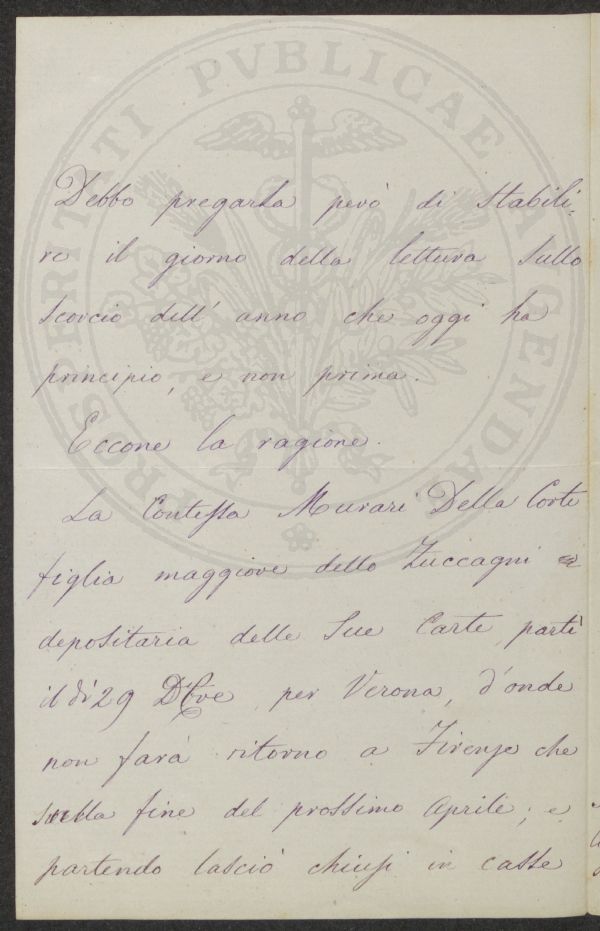 PROSPERITATI PVBLICAE AVGENDAE
Debbo pregarla però di stabili-
re il giorno della lettura sullo
scorcio dell' anno che oggi ha
principio, e non prima.
Eccone la ragione.
La Contessa Murari Della Corte
figlia maggiore dello Zuccagni e
depositaria delle sue Carte, partì
il dì 29 Dbre per Verona, d'onde
non farà ritorno a Firenze che
sulla fine del prossimo Aprile; e
partendo lasciò chiusi in casse